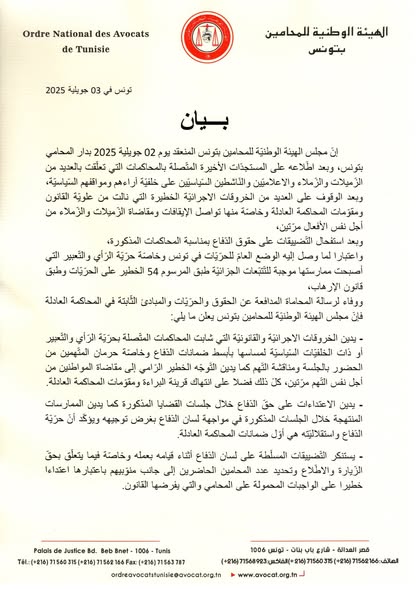 Ordre National des Avocats
de Tunisie
الهيئة الوطنية للمحامين
بتونس
تونس في 03 جويلية 2025
بيـــان
إنّ مجلس الهيئة الوطنيّة للمحامين بتونس المنعقد يوم 02 جويلية 2025 بدار المحامي
بتونس، وبعد اطّلاعه على المستجدّات الأخيرة المتّصلة بالمحاكمات التي تعلّقت بالعديد من
الزّميلات والزّملاء والاعلاميّين والنّاشطين السّياسيّين على خلفيّة آراءهم ومواقفهم السّياسيّة،
وبعد الوقوف على العديد من الخروقات الاجرائيّة الخطيرة التي نالت من علويّة القانون
ومقوّمات المحاكمة العادلة وخاصّة منها تواصل الإيقافات ومقاضاة الزّميلات والزّملاء من
أجل نفس الأفعال مرّتين،
وبعد استفحال التّضييقات على حقوق الدّفاع بمناسبة المحاكمات المذكورة،
واعتبارا لما وصل إليه الوضع العامّ للحريّات في تونس وخاصّة حريّة الرّأي والتّعبير التي
أصبحت ممارستها موجبة للتّتبّعات الجزائيّة طبق المرسوم 54 الخطير على الحريّات وطبق
قانون الإرهاب،
ووفاء لرسالة المحاماة المدافعة عن الحقوق والحريّات والمبادئ الثّابتة في المحاكمة العادلة
فإنّ مجلس الهيئة الوطنيّة للمحامين بتونس يعلن ما يلي:
- يدين الخروقات الاجرائيّة والقانونيّة التي شابت المحاكمات المتّصلة بحريّة الرّأي والتّعبير
أو ذات الخلفيّات السّياسيّة لمساسها بأبسط ضمانات الدّفاع وخاصّة حرمان المتّهمين من
الحضور بالجلسة ومناقشة التّهم كما يدين التّوجّه الخطير الرّامي إلى مقاضاة المواطنين من
أجل نفس التّهم مرّتين، كلّ ذلك فضلا على انتهاك قرينة البراءة ومقوّمات المحاكمة العادلة.
- يدين الاعتداءات على حقّ الدّفاع خلال جلسات القضايا المذكورة كما يدين الممارسات
المنتهجة خلال الجلسات المذكورة في مواجهة لسان الدّفاع بغرض توجيهه ويؤكّد أنّ حريّة
الدّفاع واستقلاليّته هي أوّل ضمانات المحاكمة العادلة.
- يستنكر التّضييقات المسلّطة على لسان الدّفاع أثناء قيامه بعمله وخاصّة فيما يتعلّق بحقّ
الزّيارة والاطّلاع وتحديد عدد المحامين الحاضرين إلى جانب منوّبيهم باعتبارها اعتداءا
خطيرا على الواجبات المحمولة على المحامي والتي يفرضها القانون.
Palais de Justice Bd. Beb Bnet - 1006 - Tunis
قصر العدالة - شارع باب بنات - تونس 1006
Tél.: (+216) 71 560 315 (+216) 71 562 166 Fax: (+216) 71 563 787
ordreavocatstunisie@avocat.org.tn
www.avocat.org.tn